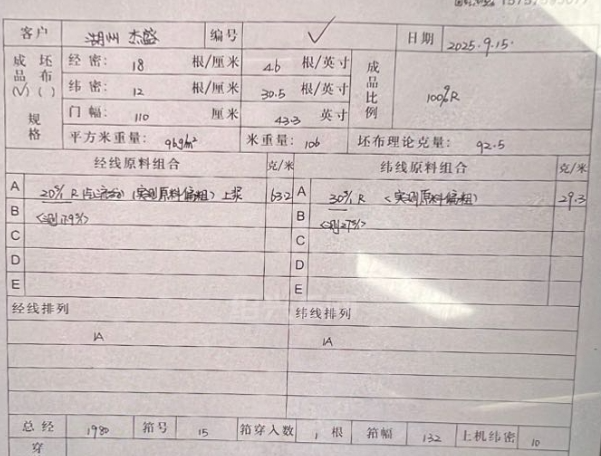 客户 湖州 杰盛 编号 ✓ 日期 2025.9.15.
成品(√) 坯布( ) 规格
经密: 18 根/厘米 46 根/英寸
纬密: 12 根/厘米 30.5 根/英寸
门幅: 110 厘米 43.3 英寸
成品比例 100%R
平方米重量: 96g/m² 米重量: 106 坯布理论克量: 92.5
经线原料组合 克/米 纬线原料组合 克/米
A 20% R (实测原料偏粗) 上浆 63.2 A 30% R <实测原料偏粗> 29.3
B <测19%> B <测27%>
C C
D D
E E
经线排列 纬线排列
1A 1A
总经 1980 筘号 15 筘穿入数 1 根 筘幅 132 上机纬密 10
穿